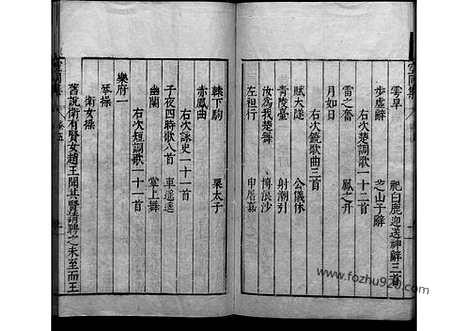 雩旱　祀白鹿迎送神辭三首
步虛辭　芝山子辭
右次楚調歌一十二首
雷之奮　鳳之升
月如日
右次鐃歌曲三首
賦大隧　公儀休
青陵臺　射潮引
汝為我楚舞　博浪沙
左袒行　申屠嘉
轅下駒　栗太子
赤鳳曲
右次詠史一十一首
子夜四時歌八首　車遙遙
幽蘭　掌上舞
右次短調歌一十一首
樂府一
琴操
衛女操
舊說衛有賢女趙王聞其賢請聘之未至而王
www.fozhu920.com